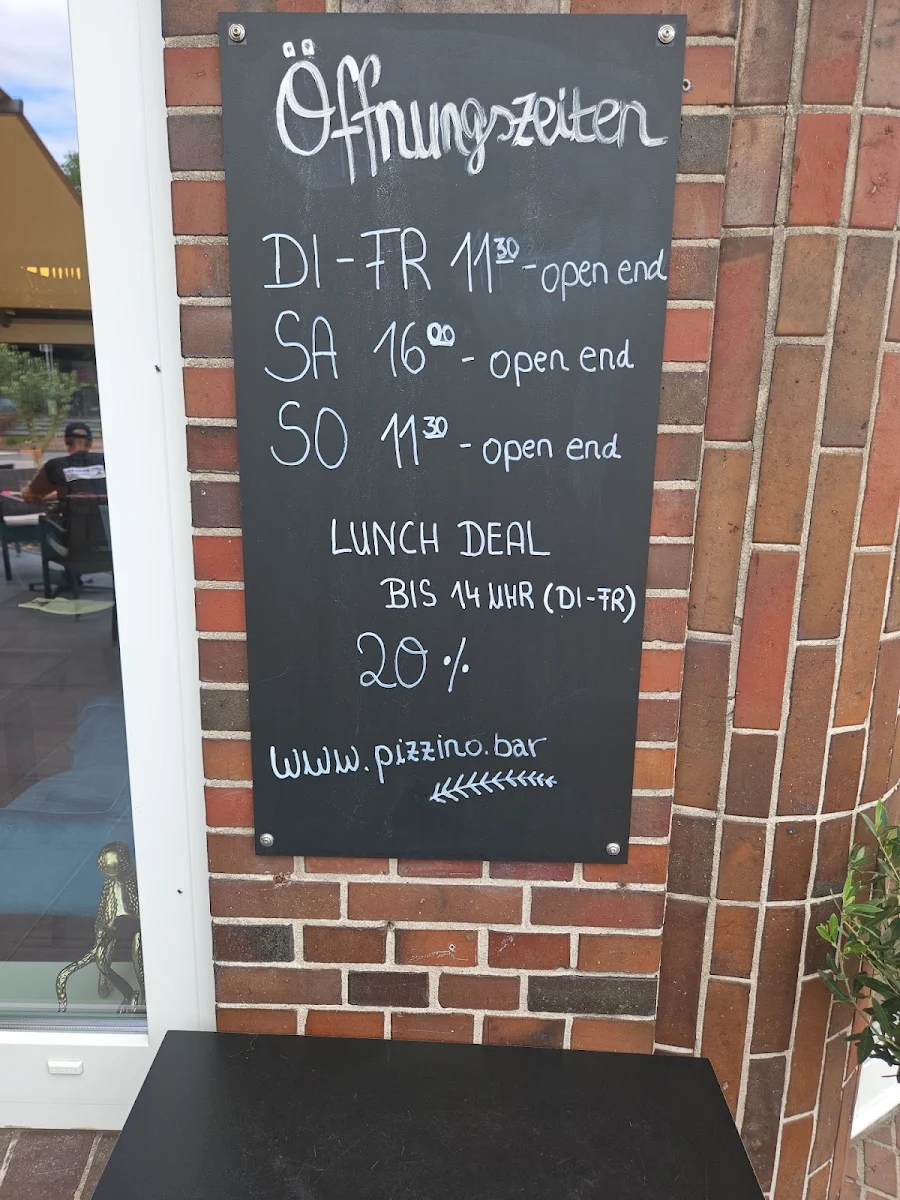 Öffnungszeiten
DI - FR 11³⁰ - open end
SA 16⁰⁰ - open end
SO 11³⁰ - open end
LUNCH DEAL
BIS 14 UHR (DI-FR)
20 %
www.pizzino.bar